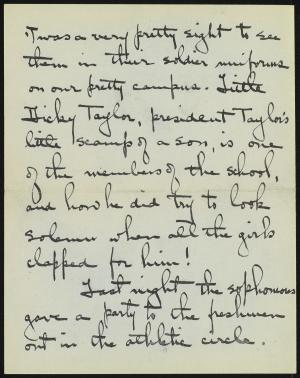 'Twas a very pretty sight to see
them in their soldier uniforms
on our pretty campus. Little
Dicky Taylor, president Taylor's
little scamp of a son, is one
of the members of the school,
and how he did try to look
solemn when all the girls
clapped for him!
Last night the sophomores
gave a party to the freshmen
out in the athletic circle.